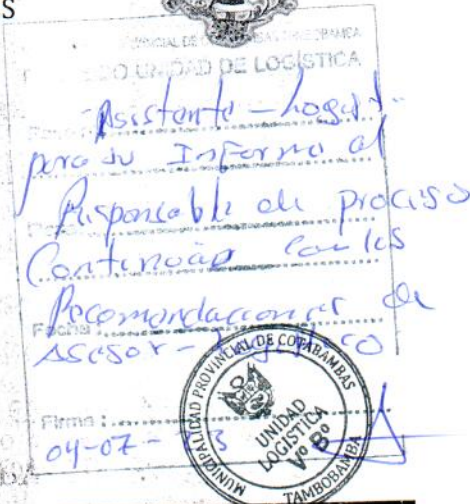 S
UNIDAD DE LOGÍSTICA
Asistente - Logist.
para su Informe al
Responsable de proceso
Continuão con las
Recomendaciones de
Fecha :
Asesor -
Firma :
04-07-
MUNICIPALIDAD PROVINCIAL DE COTABAMBAS
UNIDAD
LOGISTICA
Vº Bº
TAMBOBAMBA